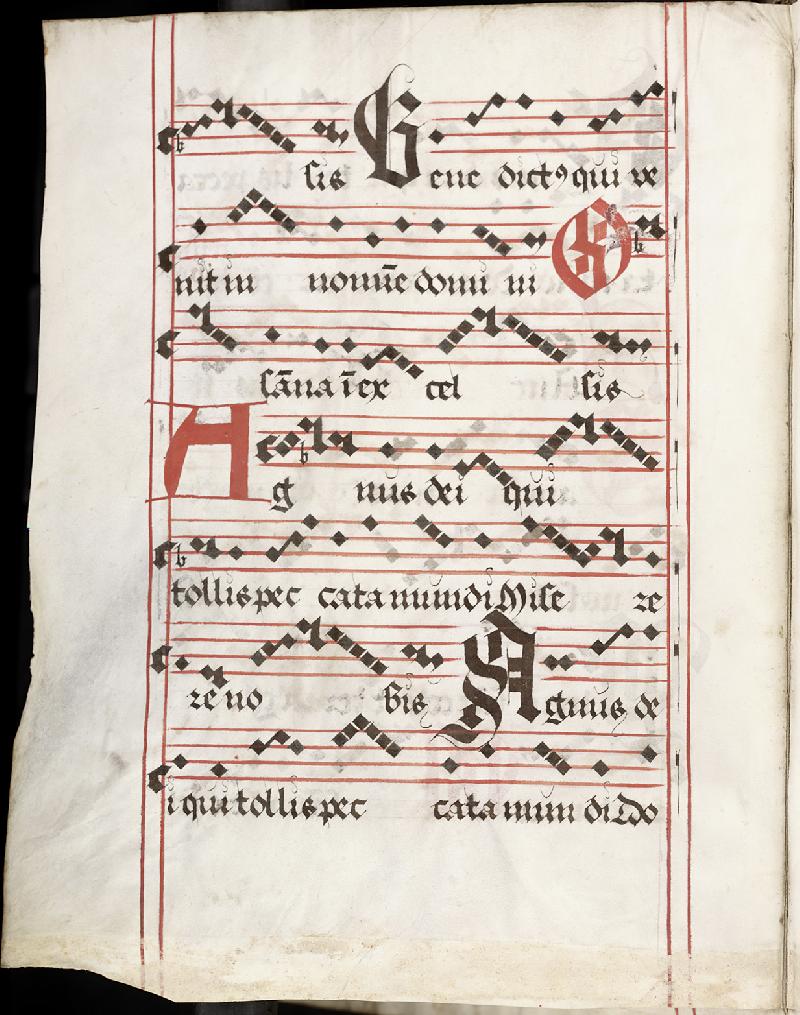 sis Bene dictꝯ qui ve
nit in nomīe domi ni O
sāna ī ex cel sis
Ag nus dei qui
tollis pec cata mundi Mise re
re no bis Agnus de
i qui tollis pec cata mun di Do